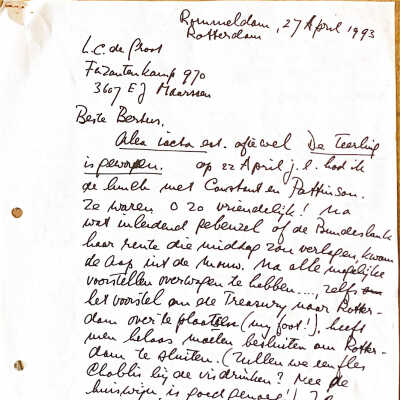 Rommeldam, 27 April 1993
Rotterdam
L.C. de Groot
Fazantenkamp 970
3607 EJ Maarssen
Beste Bertus,
Alea iacta est. oftewel De Teerling
is geworpen. op 22 April j.l. had ik
de lunch met Constant en Pattinson.
Ze waren o zo vriendelijk! Na
wat inleidend gebenzel of de Bundesbank
haar rente die middag zou verlagen, kwam
de aap uit de mouw. Na alle mogelijke
voorstellen overwogen te hebben..., zelfs
het voorstel om de Treasury naar Rotter-
dam over te plaatsen (my foot!), heeft
men helaas moeten besluiten om Rotter-
dam te sluiten. (Zullen we een fles
Chablis bij de vis drinken? Nee de
huiswijn is goed genoeg!)